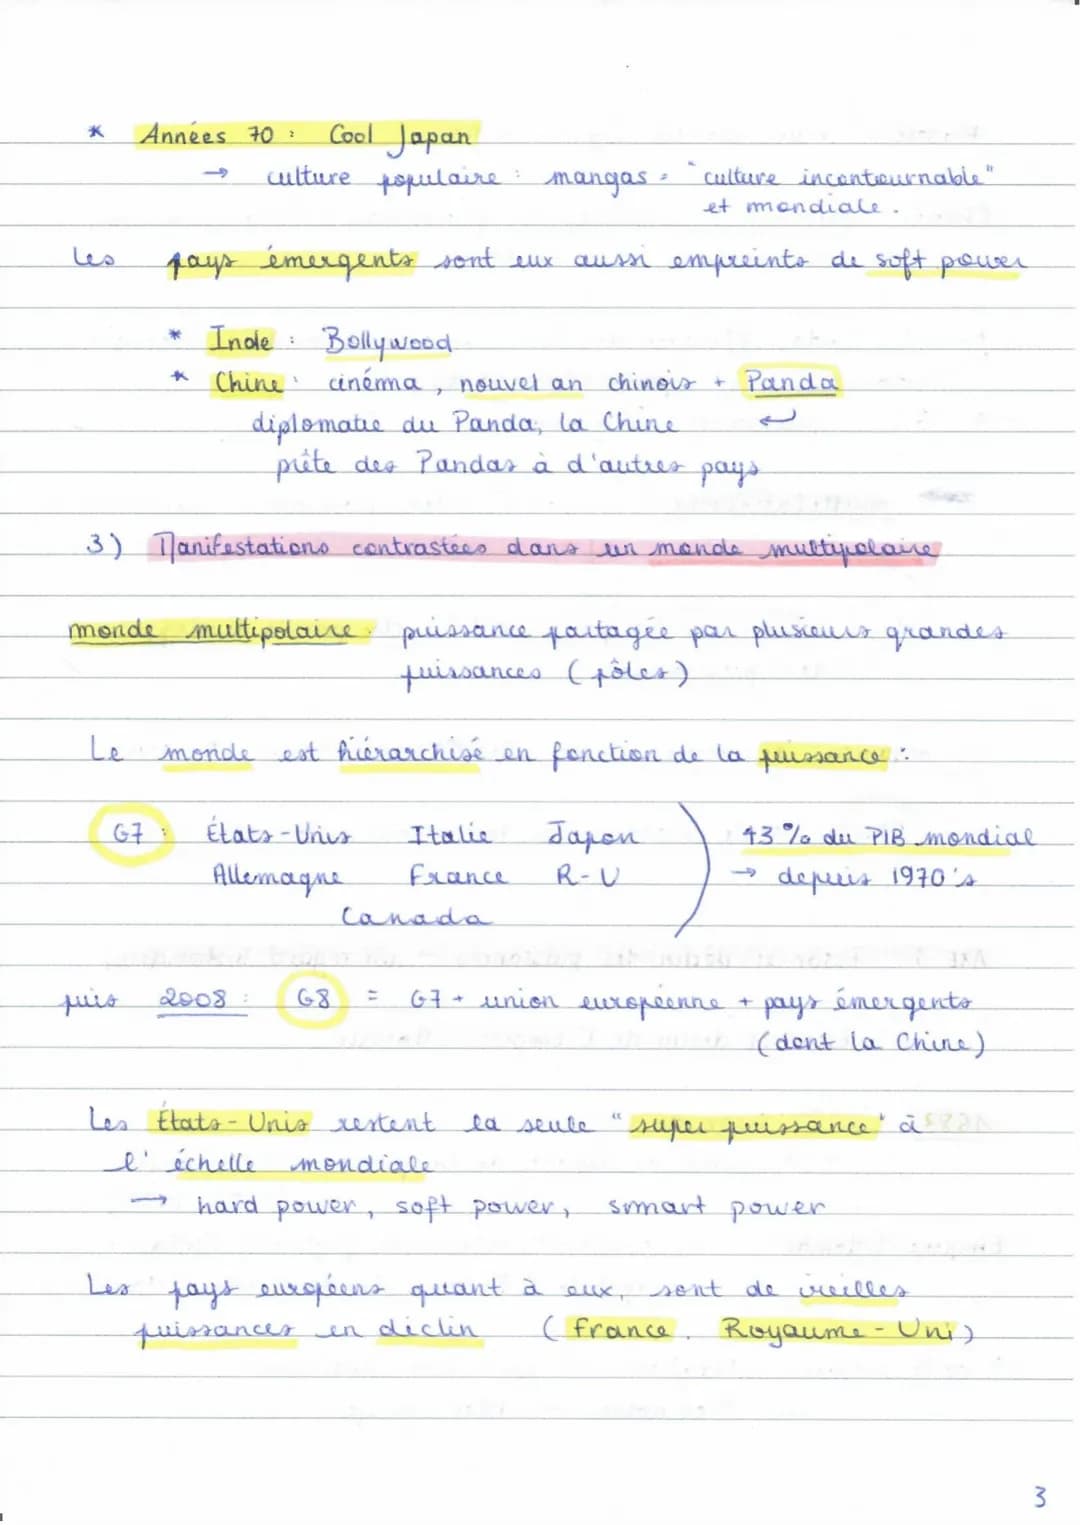 * Années 70 : Cool Japan
→ culture populaire : mangas = "culture incontournable"
et mondiale.
Les pays émergents sont eux aussi empreints de soft power
* Inde : Bollywood
* Chine : cinéma, nouvel an chinois + Panda
diplomatie du Panda, la Chine ↵
prête des Pandas à d'autres pays
3) Manifestations contrastées dans un monde multipolaire
monde multipolaire : puissance partagée par plusieurs grandes
puissances (pôles)
Le monde est hiérarchisé en fonction de la puissance :
G7 : États-Unis Italie Japon 43% du PIB mondial
Allemagne France R-U → depuis 1970's
Canada
puis 2008 : G8 = G7 + union européenne + pays émergents
(dont la Chine)
Les États-Unis restent la seule "super puissance" à
l'échelle mondiale
→ hard power, soft power, smart power
Les pays européens quant à eux, sont de vieilles
puissances en déclin (France, Royaume-Uni)
3